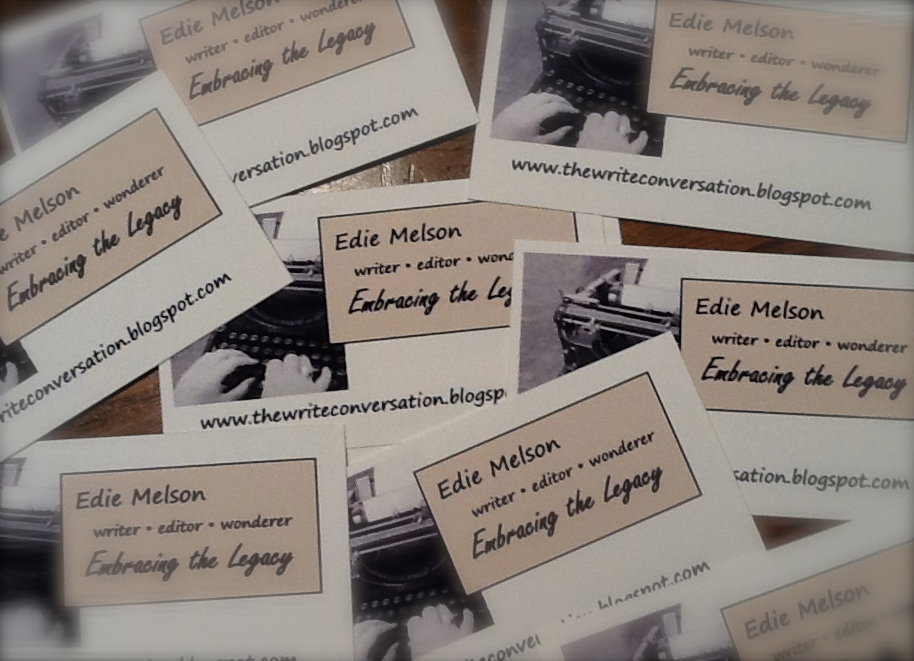 Edie Melson
writer • editor • wonderer
Embracing the Legacy
versation.blogspot.com
Edie Melson
writer • editor • wonderer
Embracing the Legacy
www.thewriteconversation.blogspot.com
e Melson
writer • editor • wonderer
Embracing the Legacy
riteconversation.blogspot.com
Edie Melson
writer • editor • wond
Embracing the Leg
www.thewriteconversation.blogsp
Edie Melson
writer • editor • wonderer
Embracing the Legacy
sation.blogspot.com
Edie Melson
writer • editor • wonderer
Embracing the Legacy
Edie Melson
writer • editor • wonderer
Embracing the Legacy
blogspot.com
Edie Melson
writer • editor • wonderer
Embracing the Legacy